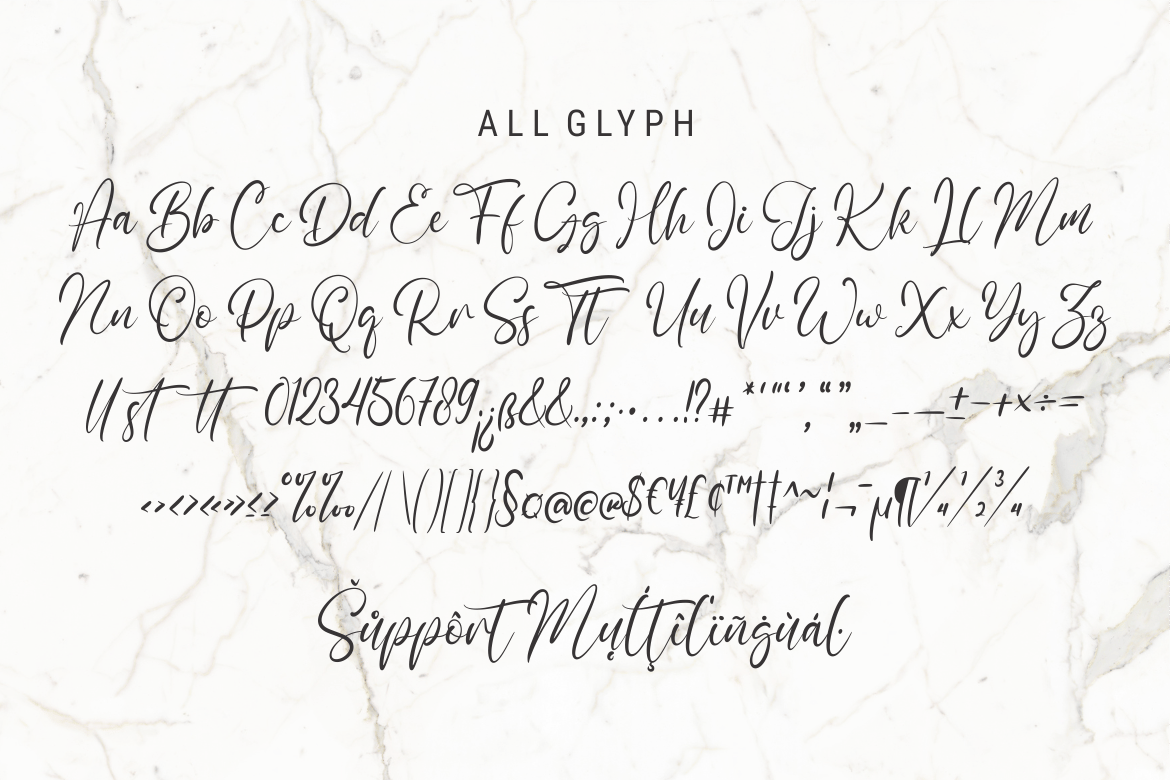 ALL GLYPH
Aa Bb Cc Dd Ee Ff Gg Hh Ii Jj Kk Ll Mm
Nn Oo Pp Qq Rr Ss Tt Uu Vv Ww Xx Yy Zz
U st tt 0123456789¡¿ß&&.,:;·•…!?#*'"“‘’‚“”„_–—±−+×÷=
‹›<>«»≤≥°%‰/|\()[]{}§¤@©®$€¥£¢™†‡^~¦¬¯µ¶¼½¾
Šůppôrt Mụtṫţîľïñġùáŀ